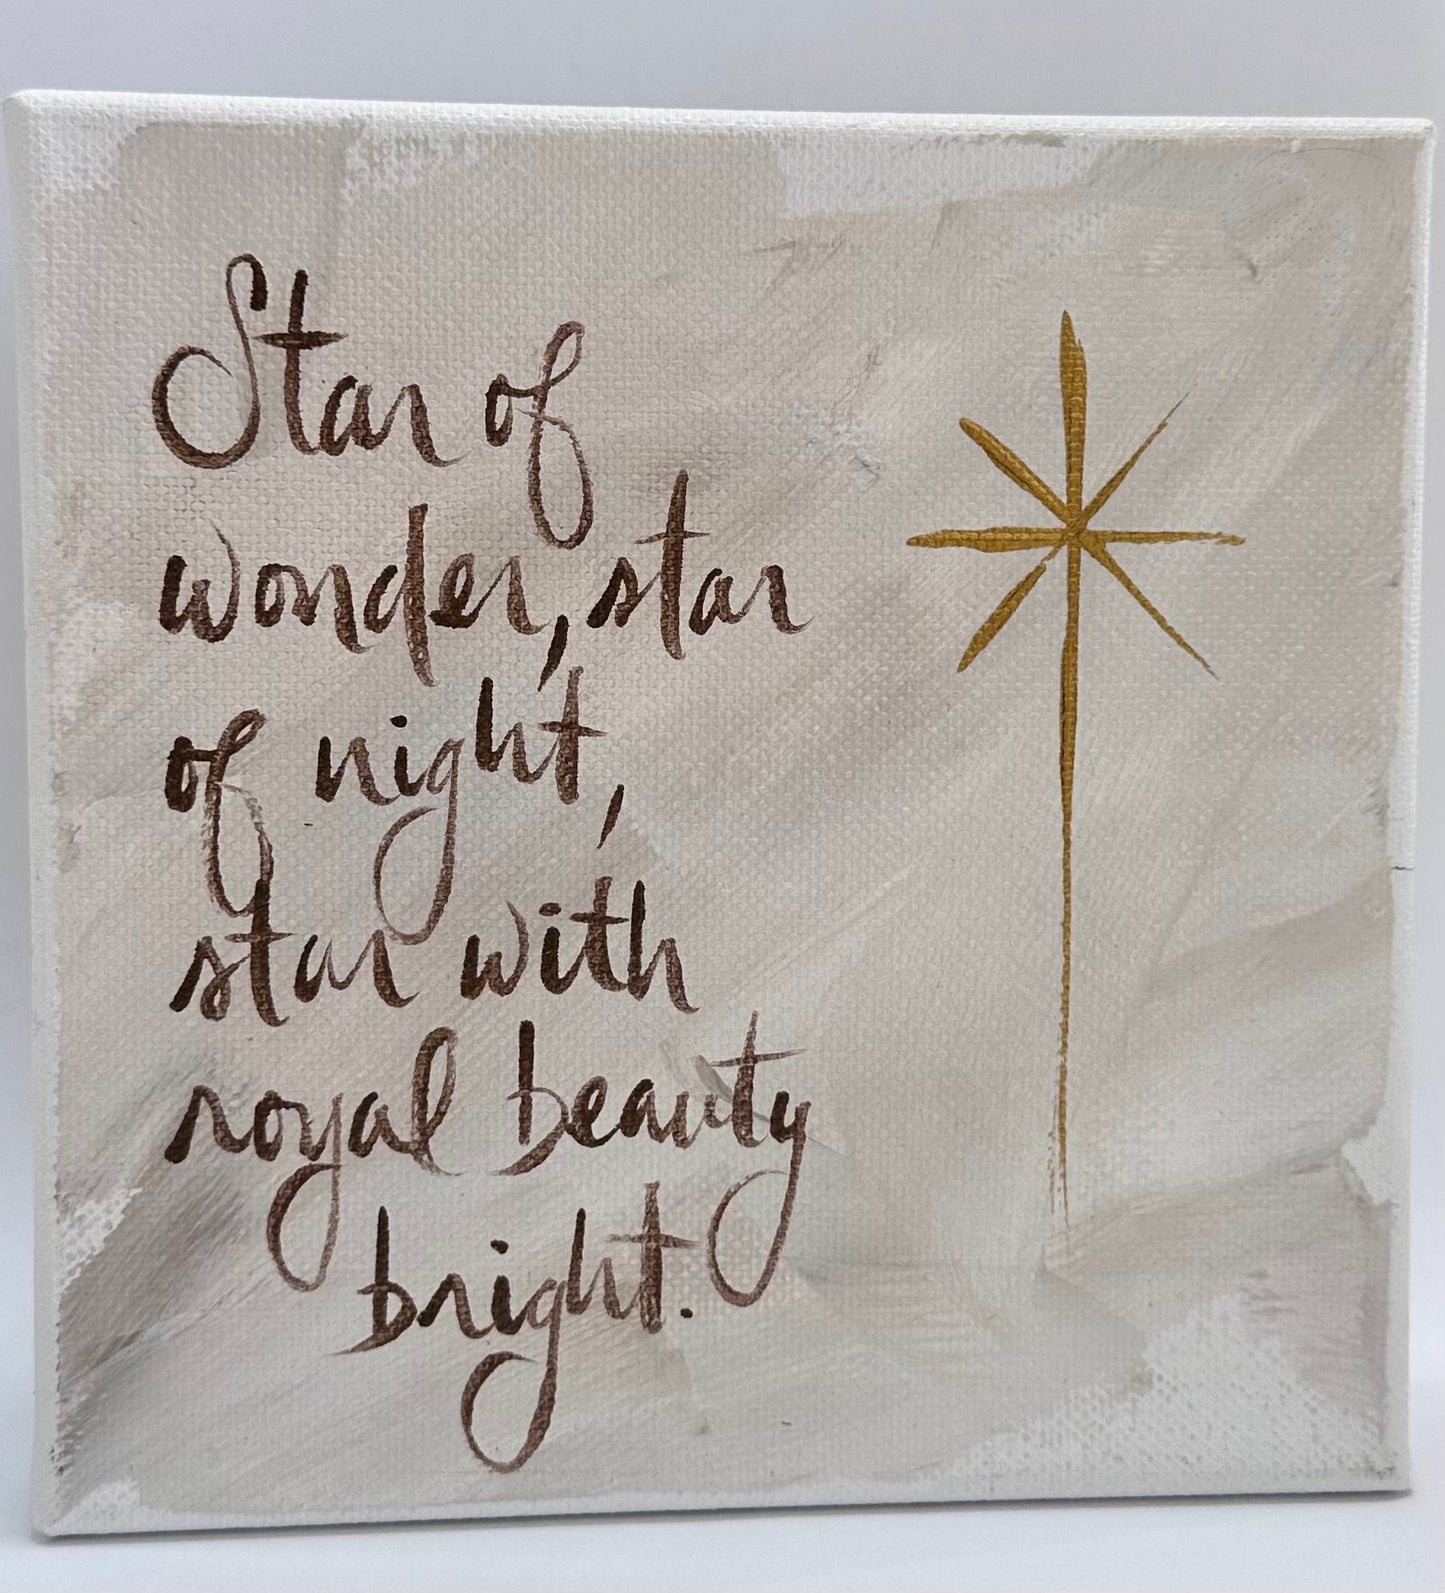 Star of
wonder, star
of night,
star with
royal beauty
bright.